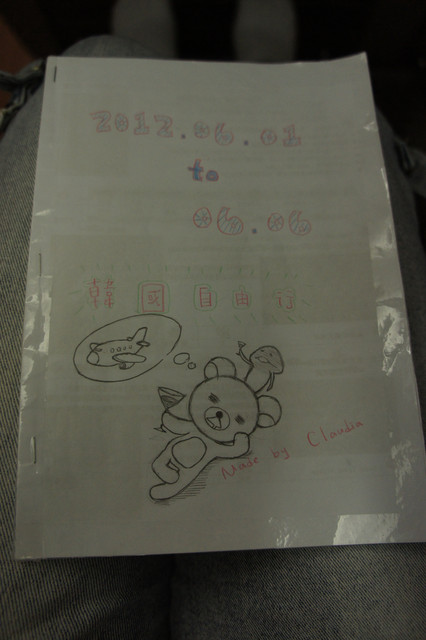 2012.06.01
to
06.06
韓國自由行
Made by Claudia